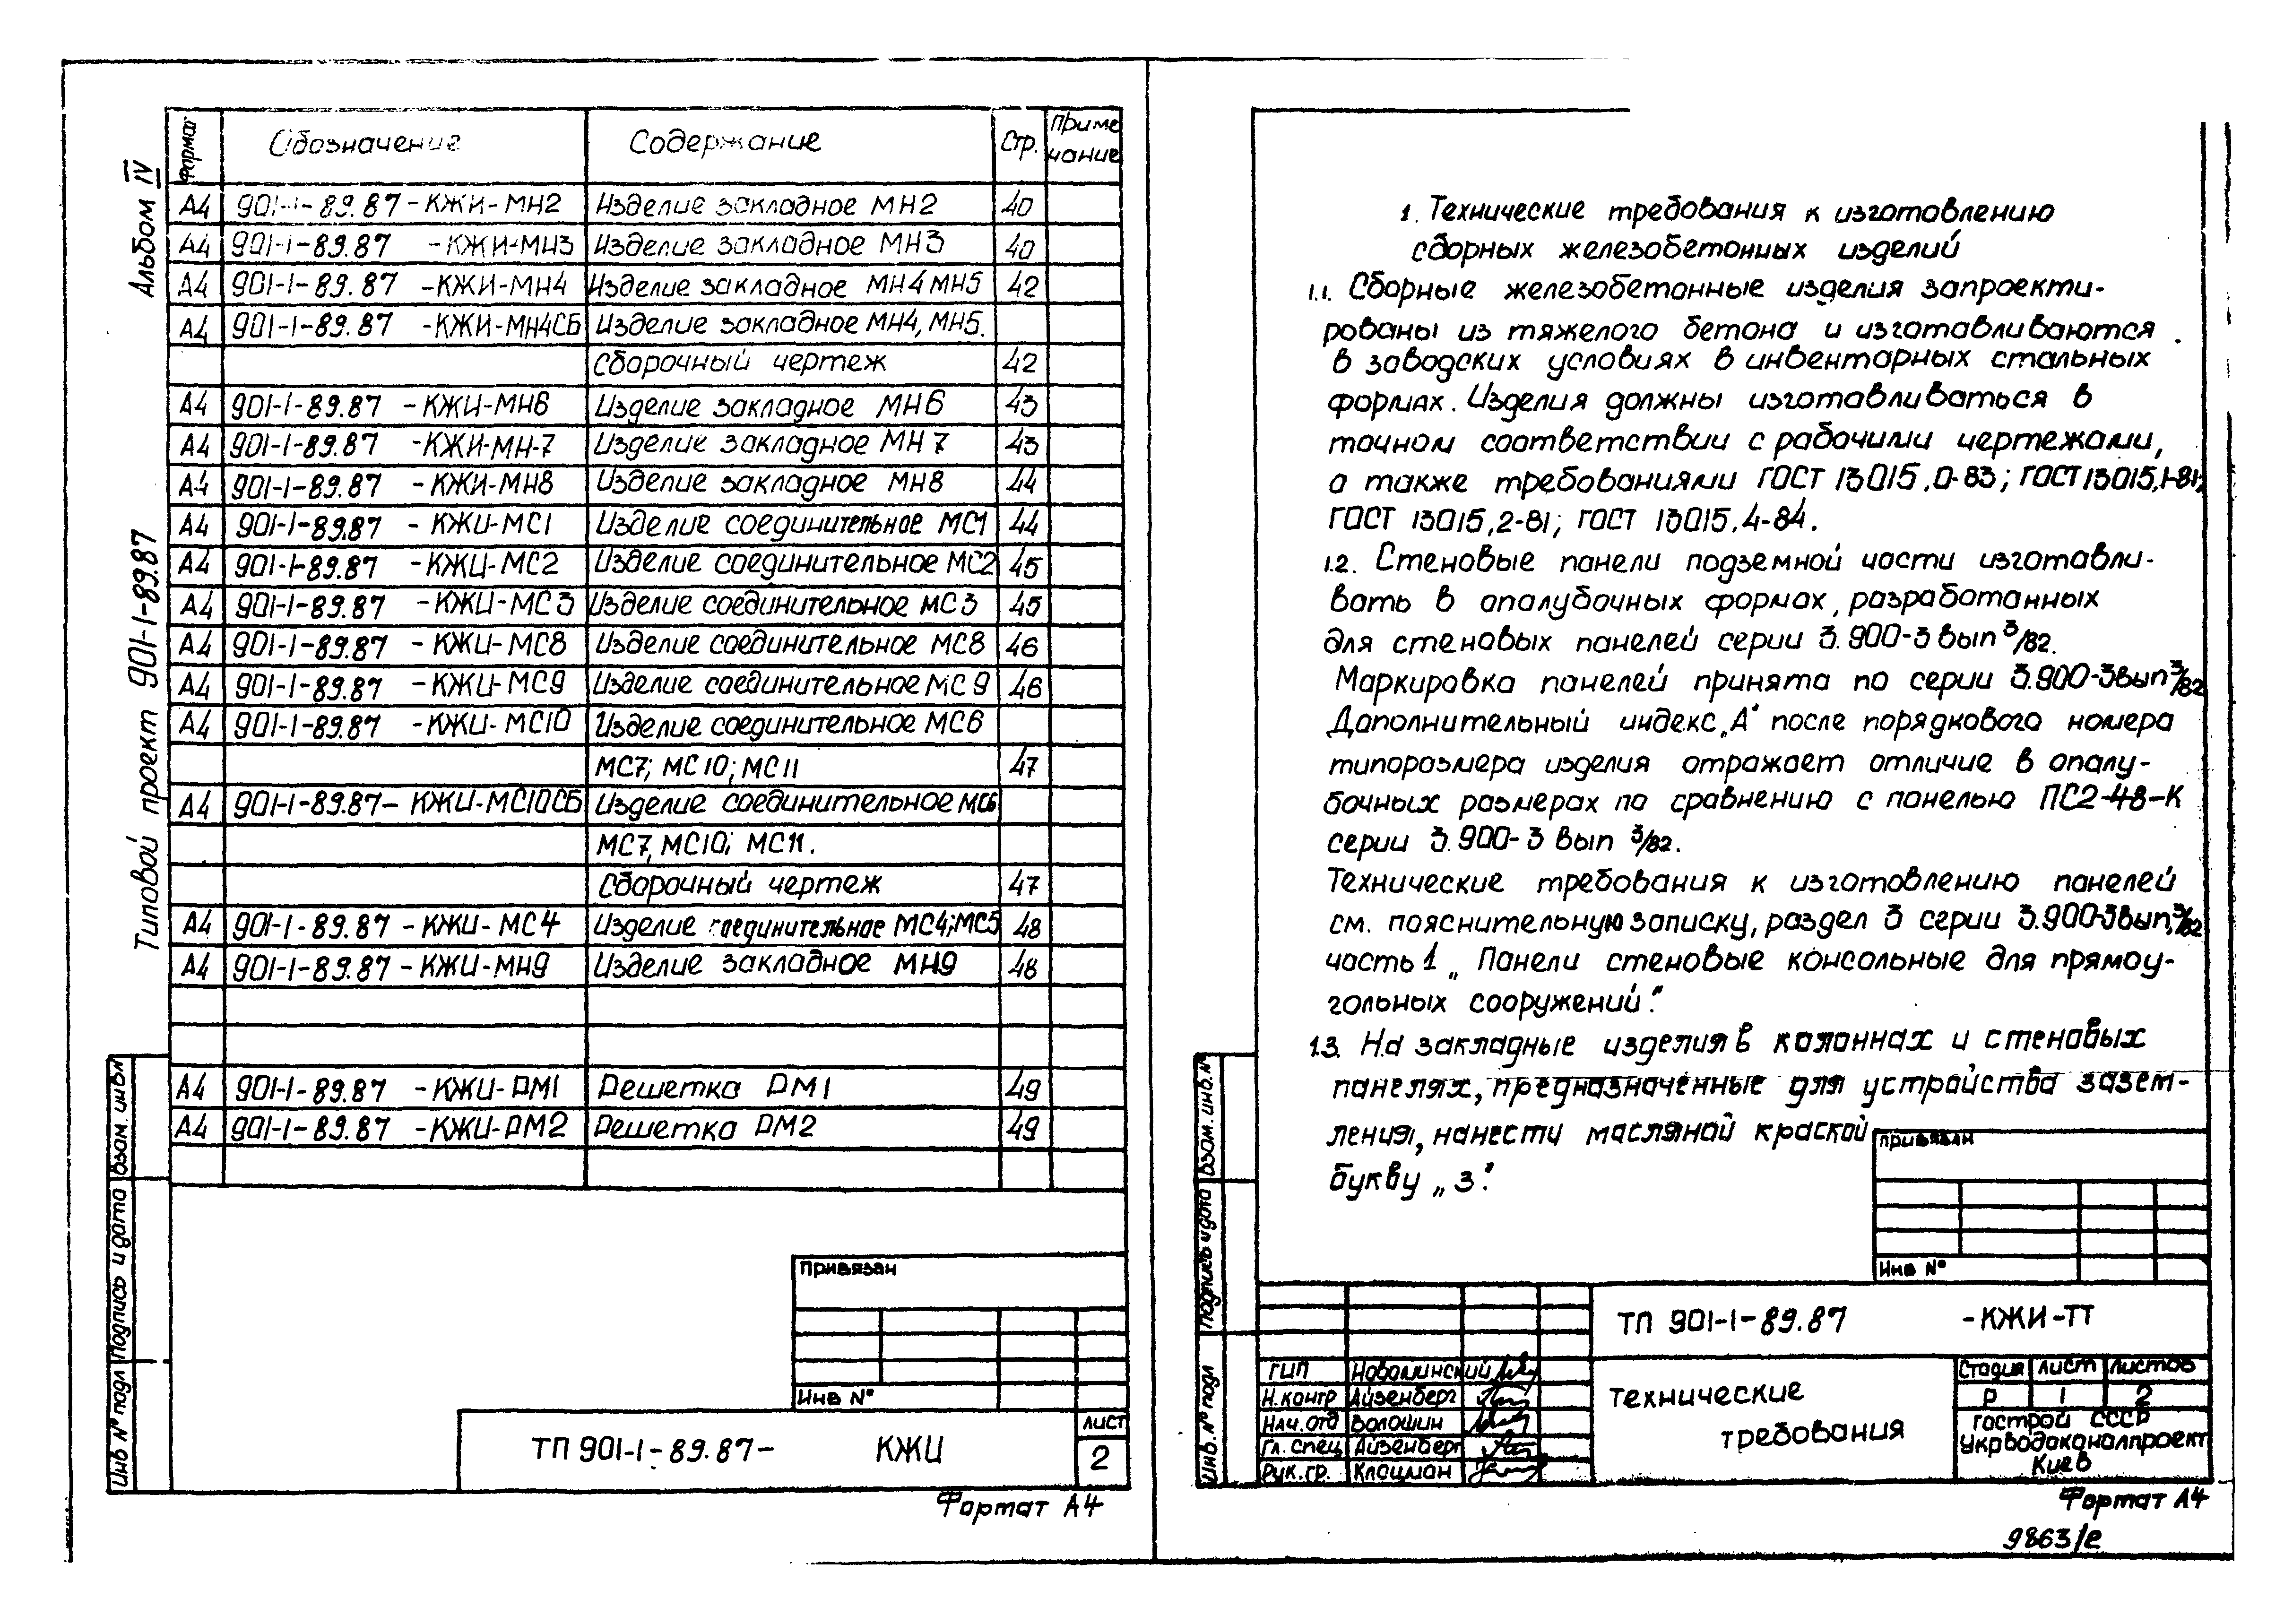 Альбом IV
Типовой проект 901-1-89.87
Формат Обозначение Содержание Стр. Приме
чание
А4 901-1-89.87 -КЖИ-МН2 Изделие закладное МН2 40
А4 901-1-89.87 -КЖИ-МН3 Изделие закладное МН3 40
А4 901-1-89.87 -КЖИ-МН4 Изделие закладное МН4 МН5 42
А4 901-1-89.87 -КЖИ-МН4СБ Изделие закладное МН4, МН5.
Сборочный чертеж 42
А4 901-1-89.87 -КЖИ-МН6 Изделие закладное МН6 43
А4 901-1-89.87 -КЖИ-МН-7 Изделие закладное МН7 43
А4 901-1-89.87 -КЖИ-МН8 Изделие закладное МН8 44
А4 901-1-89.87 - КЖИ-МС1 Изделие соединительное МС1 44
А4 901-1-89.87 -КЖИ-МС2 Изделие соединительное МС2 45
А4 901-1-89.87 -КЖИ-МС3 Изделие соединительное МС3 45
А4 901-1-89.87 - КЖИ-МС8 Изделие соединительное МС8 46
А4 901-1-89.87 - КЖИ-МС9 Изделие соединительное МС9 46
А4 901-1-89.87 - КЖИ-МС10 Изделие соединительное МС6
МС7; МС10; МС11 47
А4 901-1-89.87- КЖИ-МС10СБ Изделие соединительное МС6
МС7, МС10; МС11.
Сборочный чертеж 47
А4 901-1-89.87 -КЖИ- МС4 Изделие соединительное МС4;МС5 48
А4 901-1-89.87 -КЖИ-МН9 Изделие закладное МН9 48
А4 901-1-89.87 -КЖИ-РМ1 Решетка РМ1 49
А4 901-1-89.87 -КЖИ-РМ2 Решетка РМ2 49
Инв № подл Подпись и дата Взам. инв №
Привязан
Инв №
ТП 901-1-89.87- КЖИ
лист
2
Формат А4
1. Технические требования к изготовлению
сборных железобетонных изделий
1.1. Сборные железобетонные изделия запроекти-
рованы из тяжелого бетона и изготавливаются
в заводских условиях в инвентарных стальных
формах. Изделия должны изготавливаться в
точном соответствии с рабочими чертежами,
а также требованиями ГОСТ 13015.0-83; ГОСТ 13015.1-81;
ГОСТ 13015.2-81; ГОСТ 13015.4-84.
1.2. Стеновые панели подземной части изготавли-
вать в опалубочных формах, разработанных
для стеновых панелей серии 3.900-3 вып 3/82.
Маркировка панелей принята по серии 3.900-3 вып 3/82
Дополнительный индекс „А" после порядкового номера
типоразмера изделия отражает отличие в опалу-
бочных размерах по сравнению с панелью ПС2-48-К
серии 3.900-3 вып 3/82.
Технические требования к изготовлению панелей
см. пояснительную записку, раздел 3 серии 3.900-3 вып. 3/82
часть 1 „ Панели стеновые консольные для прямоу-
гольных сооружений".
1.3. На закладные изделия в колоннах и стеновых
панелях, предназначенные для устройства зазем-
ления, нанести масляной краской
букву „З".
Инв. № подл Подпись и дата Взам. инв. №
Привязан
Инв №
ТП 901-1-89.87 -КЖИ-ТТ
ГИП Новоминский
Н.контр Айзенберг
Нач.отд Волошин
Гл. спец Айзенберг
Рук.гр. Клоцман
Технические
требования
Стадия лист листов
Р 1 2
Гострой СССР
Укрводоканалпроект
Киев
Формат А4
9863/2